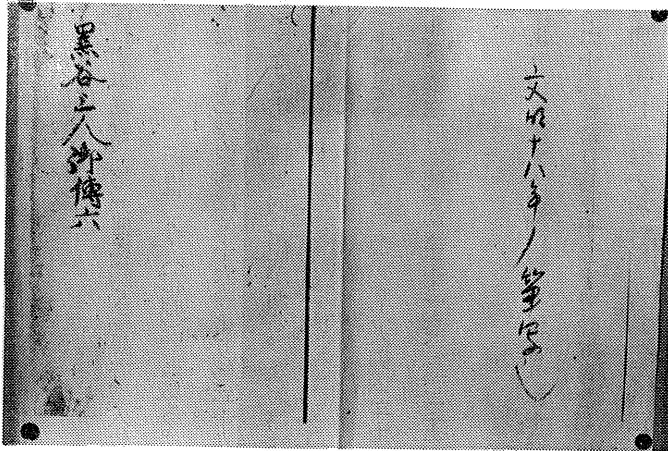 文明十八年ノ筆写
黒谷上人御傳六